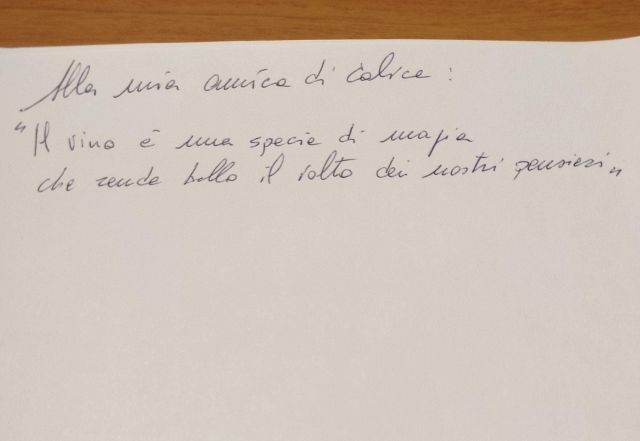 Alla mia amica di calice:
"Il vino è una specie di magia
che rende bello il volto dei nostri pensieri"